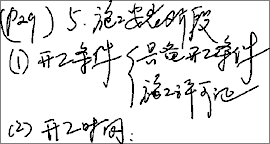 (P29) 5. 施工安装阶段
(1) 开工条件 { 具备开工条件
施工许可证
(2) 开工时间: